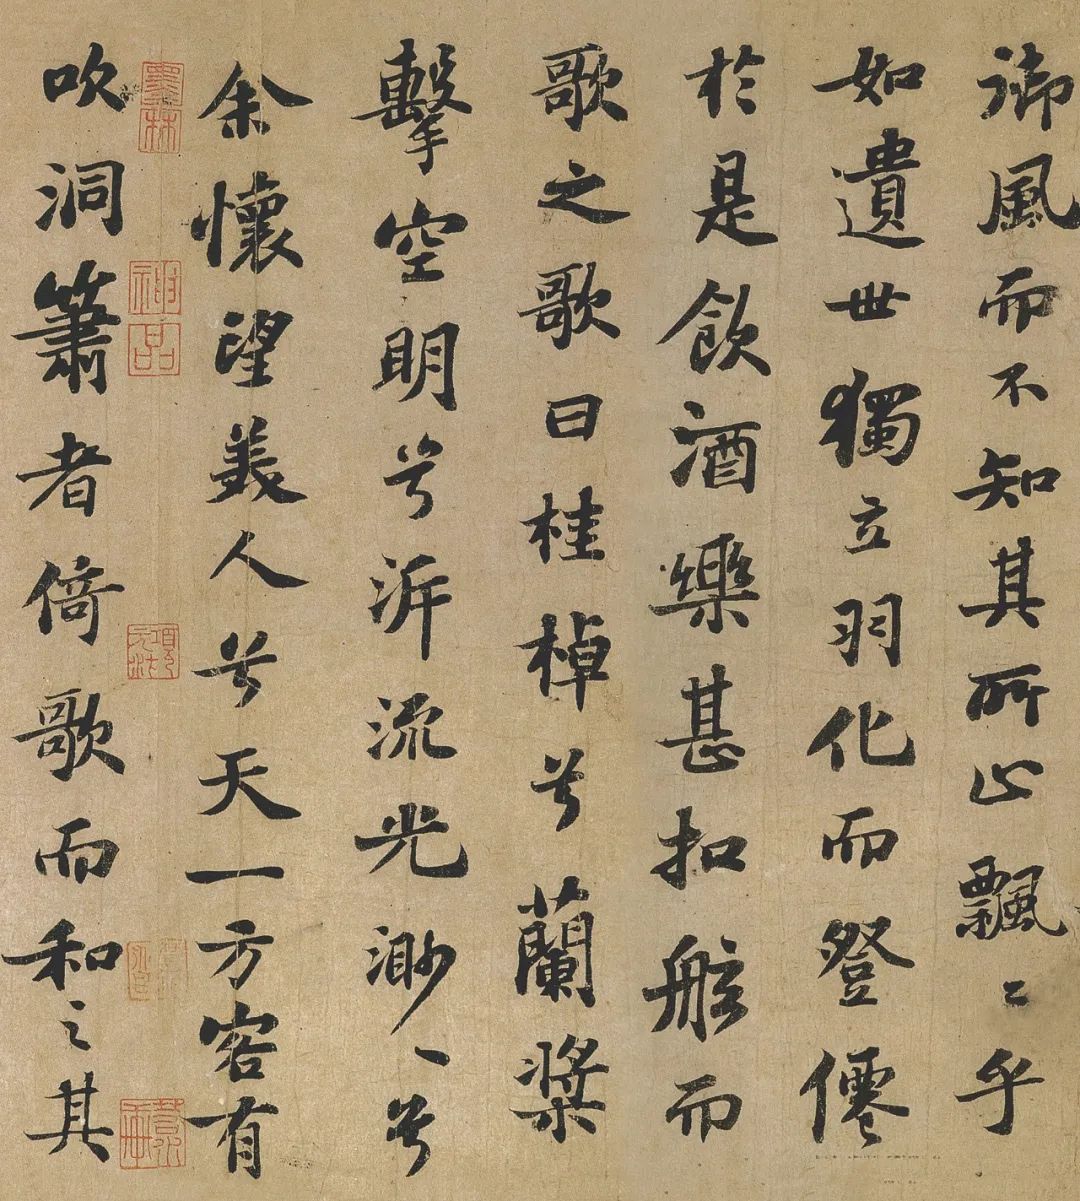 御風而不知其所止飄〻乎
如遺世獨立羽化而登僊
於是飲酒樂甚扣舷而
歌之歌曰桂棹兮蘭槳
擊空明兮泝流光渺〻兮
余懷望美人兮天一方客有
吹洞簫者倚歌而和之其
墨林
神品